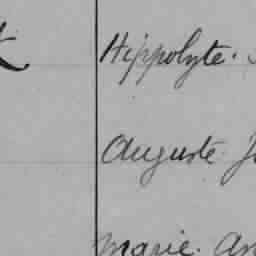 Hippolyte.
Auguste
Marie. An